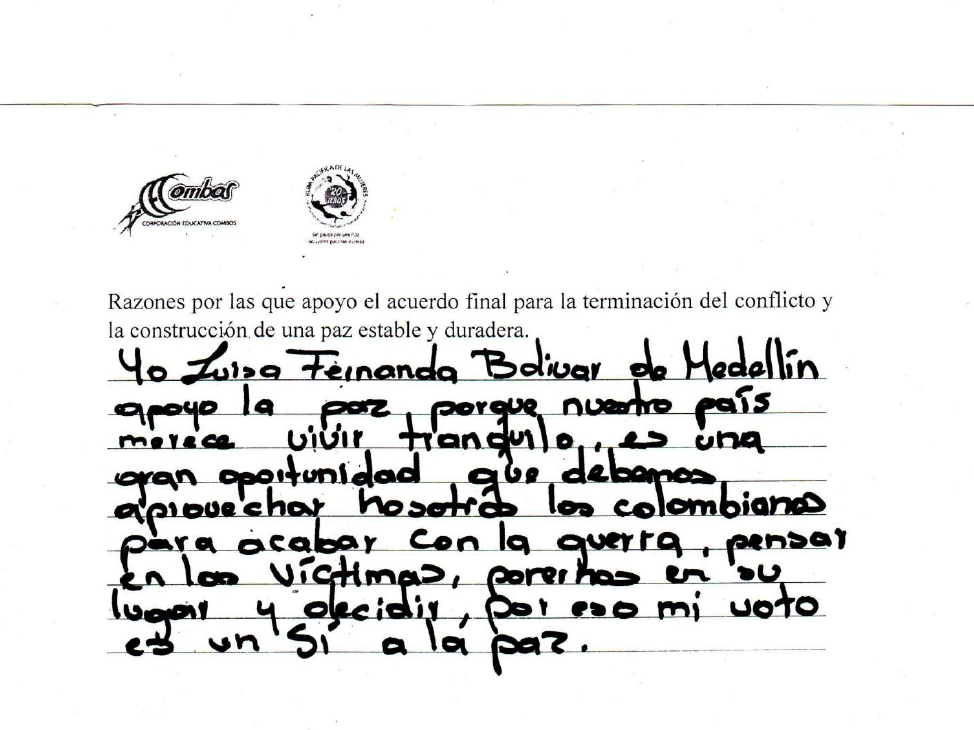 Combos
CORPORACIÓN EDUCATIVA COMBOS
RUTA PACÍFICA DE LAS MUJERES
20 años
Razones por las que apoyo el acuerdo final para la terminación del conflicto y
la construcción de una paz estable y duradera.
Yo Luisa Fernanda Bolivar de Medellín
apoyo la paz, porque nuestro país
merece vivir tranquilo, es una
gran oportunidad que debemos
aprovechar nosotros los colombianos
para acabar con la guerra, pensar
en las víctimas, ponernos en su
lugar y decidir, por eso mi voto
es un Sí a la paz.